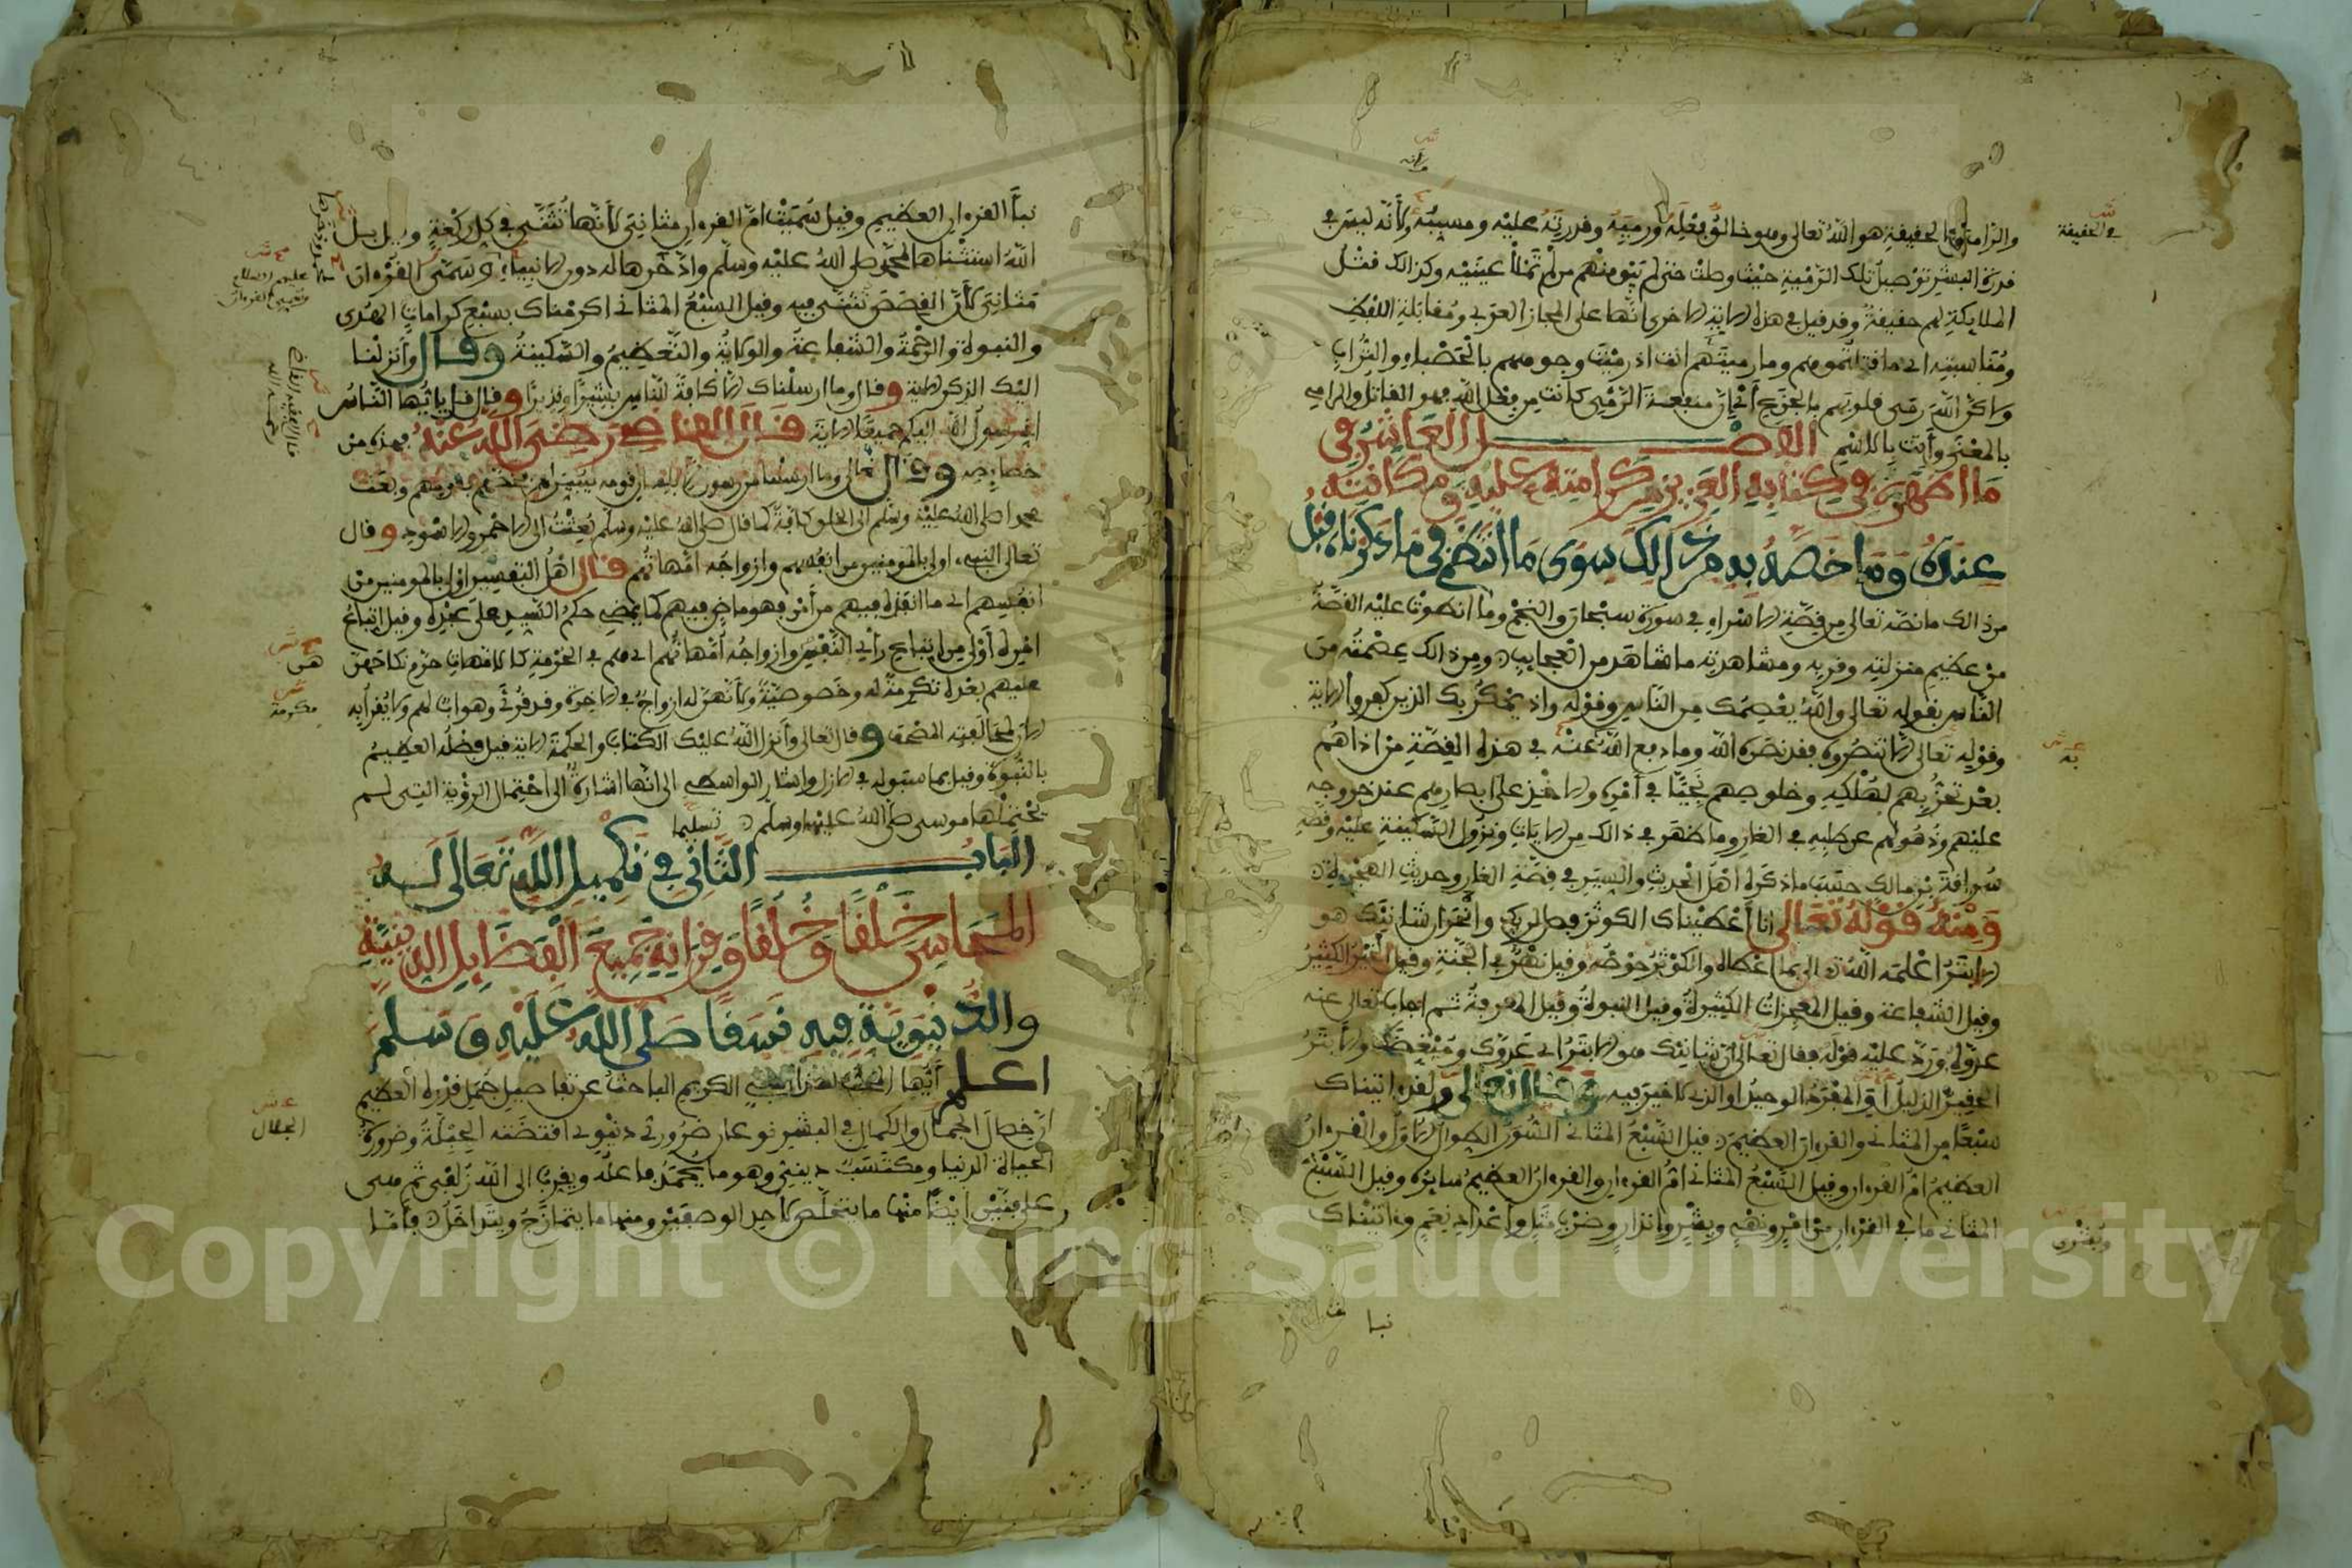 والرامي في الحقيقة هو الله تعالى وهو خالق فعله ورميه وقدرته عليه ومسببه ولأنه ليس في
قدرة البشر توصيل تلك الرمية حيث وصلت حتى لم يبق منهم من لم تملأ عينيه وكذالك قتل
الملايكة لهم حقيقة وقد قيل في هذه الاية الاخرى انها على المجاز العربي ومقابلة اللفظ
ومناسبته اي ما قتلتموهم وما رميتهم انت اذ رميت وجوههم بالحصباء والتراب
ولاكن الله رمى قلوبهم بالجزع أي أن منفعة الرمي كانت من فعل الله فهو القاتل والرامي
بالمعنى وأنت بالاسم الفصل العاشر في
ما اظهره في كتابه العزيز من كرامته عليه ومكانته
عنده وما خصه به من ذالك سوى ما انتظم في ما ذكرناه قبل
من ذالك ما نصه تعالى من قصة الاسراء في سورة سبحان والنجم وما انطوت عليه القصة
من عظيم منزلته وقربه ومشاهدته ما شاهد من العجايب ومن ذالك عصمته من
الناس بقوله تعالى والله يعصمك من الناس وقوله واذ يمكر بك الذين كفروا الاية
وقوله تعالى الا تنصروه فقد نصره الله وما دفع الله عنه في هذه القصة من اذاهم
بعد تحزبهم لهلكه وخلوصهم نجيا في أمره والاخذ على ابصارهم عند خروجه
عليهم وذهولهم عن طلبه في الغار وما ظهر في ذالك من الايات ونزول السكينة عليه وقصة
سراقة بن مالك حسب ما ذكره اهل الحديث والسير في قصة الغار وحديث الهجرة
ومنه قوله تعالى انا أعطيناك الكوثر فصل لربك وانحر ان شانئك هو
الابتر اعلمه الله تعالى بما اعطاه والكوثر حوضه وقيل نهر في الجنة وقيل الخير الكثير
وقيل الشفاعة وقيل المعجزات الكثيرة وقيل النبوة وقيل المعرفة ثم اجاب تعالى عنه
عدوه ورد عليه قوله فقال تعالى ان شانئك هو الابتر اي عدوك ومبغضك والأبتر
الحقير الذليل أو المفرد الوحيد او الذي لا خير فيه وقال تعالى ولقد اتيناك
سبعا من المثاني والقرءان العظيم قيل السبع المثاني السور الطوال الاول والقرءان
العظيم ام القرءان وقيل السبع المثاني ام القرءان والقرءان العظيم سايره وقيل السبع
المثاني ما في القرءان من امر ونهي وبشر وانذار وضرب مثل واعداد نعم وءاتيناك
في الحقيقة
به
وبشرى
نبا
نبأ القرءان العظيم وقيل سميت ام القرءان مثاني لأنها تثنى في كل ركعة وقيل بل
الله استثناها لمحمد صلى الله عليه وسلم واذخرها له دون الانبياء وسمى القرءان
مثاني لأن القصص تثنى فيه وقيل السبع المثاني اكرمناك بسبع كرامات الهدى
والنبوة والرحمة والشفاعة والولاية والتعظيم والسكينة وقال وأنزلنا
اليك الذكر الاية وقال وما ارسلناك الا كافة للناس بشيرا ونذيرا وقال قل يايها الناس
اني رسول الله اليكم جميعا الاية قال القاضي رضي الله عنه فهذه من
خصايصه وقال تعالى وما ارسلنا من رسول الا بلسان قومه ليبين لهم فخصهم بقومهم وبعث
محمدا صلى الله عليه وسلم الى الخلق كافة كما قال صلى الله عليه وسلم بعثت الى الاحمر والاسود وقال
تعالى النبيء اولى بالمومنين من انفسهم وازواجه امهاتهم قال اهل التفسير اولى بالمومنين من
انفسهم اي ما انفذه فيهم من أمر فهو ماض فيهم كما يمضي حكم السيد على عبده وقيل اتباع
امره أولى من اتباع رأي النفس وازواجه أمهاتهم اي هم في الحرمة كالامهات حرم نكاحهن
عليهم بعده تكرمة له وخصوصية ولأنهن له ازواج في الاخرة وقد قرئ وهو اب لهم ولا يقرأ به
الان لمخالفته المصحف وقال تعالى وأنزل الله عليك الكتاب والحكمة الاية قيل فضله العظيم
بالنبوة وقيل بما سبق له في الازل واشار الواسطي الى انها اشارة الى احتمال الرؤية التي لم
يحتملها موسى صلى الله عليهما وسلم تسليما
الباب الثاني في تكميل الله تعالى له
المحاسن خلقا وخلقا وقرانه جميع الفضايل الدينية
والدنيوية فيه نسقا صلى الله عليه وسلم
اعلم أيها المحب لهذا النبيء الكريم الباحث عن تفاصيل جمل قدره العظيم
ان خصال الجمال والكمال في البشر نوعان ضروري دنيوي اقتضته الجبلة وضرورة
الحياة الدنيا ومكتسب ديني وهو ما يحمد فاعله ويقرب الى الله زلفى ثم هي
على فنين أيضا منها ما يتخلص لاحد الوصفين ومنها ما يتمازج ويتداخل فأما
هن
مكرمة
الجلال
Copyright © King Saud University